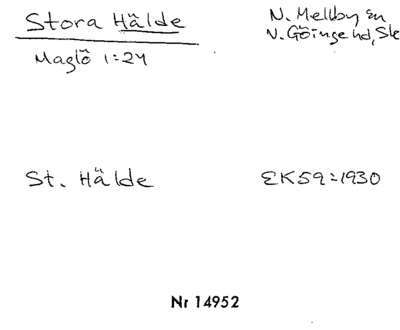 Stora Hälde
N. Mellby sn
V. Göinge hd, Sk
Maglö 1:24
St. Hälde
EK59 = 1930
Nr 14952